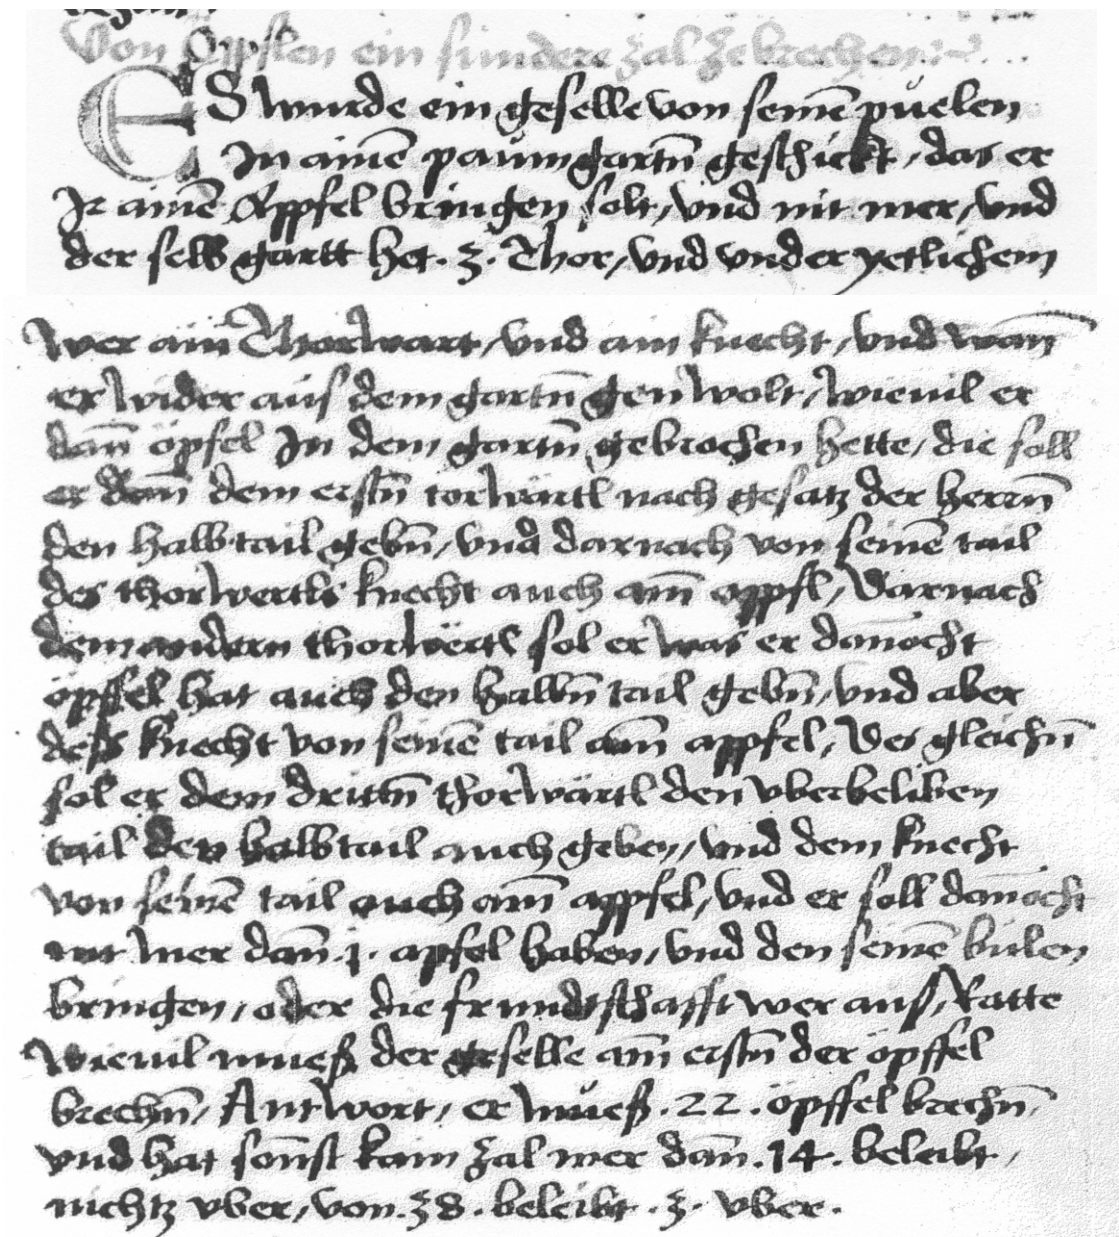 Von Öpfflen ein sundere zal zebrechen
ES wurde ein geselle von seinē puelen
In ainē paūmgartn̄ geschickt, das er
Ir ainē Appfel bringen solt, vnd nit mer, vnd
der selb gartt het . 3 . Thor, vnd vnder yetlichem
wer ain Thorwart, vnd ain knecht, vnd wan̄
er wider aus dem gartn̄ gen wolt, wieuil er
dan̄ öpfel In dem gartn̄ gebrochen hette, die soll
er dan̄ dem erstn̄ torwärtl nach gesatz der herrn̄
den halbtail gebn̄, vnd darnach von seinē tail
des thorwertls knecht auch ain̄ appfl, Darnach
dem andern thorwërtl sol er was er dan̄ocht
öpffel hat auch den halbn̄ tail gebn̄, vnd aber
dess knecht von seinē tail ain̄ appfel, Des gleichn̄
sol er dem drittn̄ thorwärtl den vberbeliben
tail den halbtail auch geben, vnd dem knecht
von seinē tail auch ain̄ appfel, vnd er soll dan̄ocht
nit mer dan̄ .j. apfel haben, vnd den seinē būlen
bringen, oder die frundtschafft wer aus, Ratte
wieuil muesz der geselle am̄ erstn̄ der öpffel
brechn̄, Antwort, er mŭesz . 22 . öpffel brechn̄,
vnd hat son̄st kain zal mer dan̄ . 14 . beleibt,
nichtz vber, von . 38 . beleibt . 3 . vber .